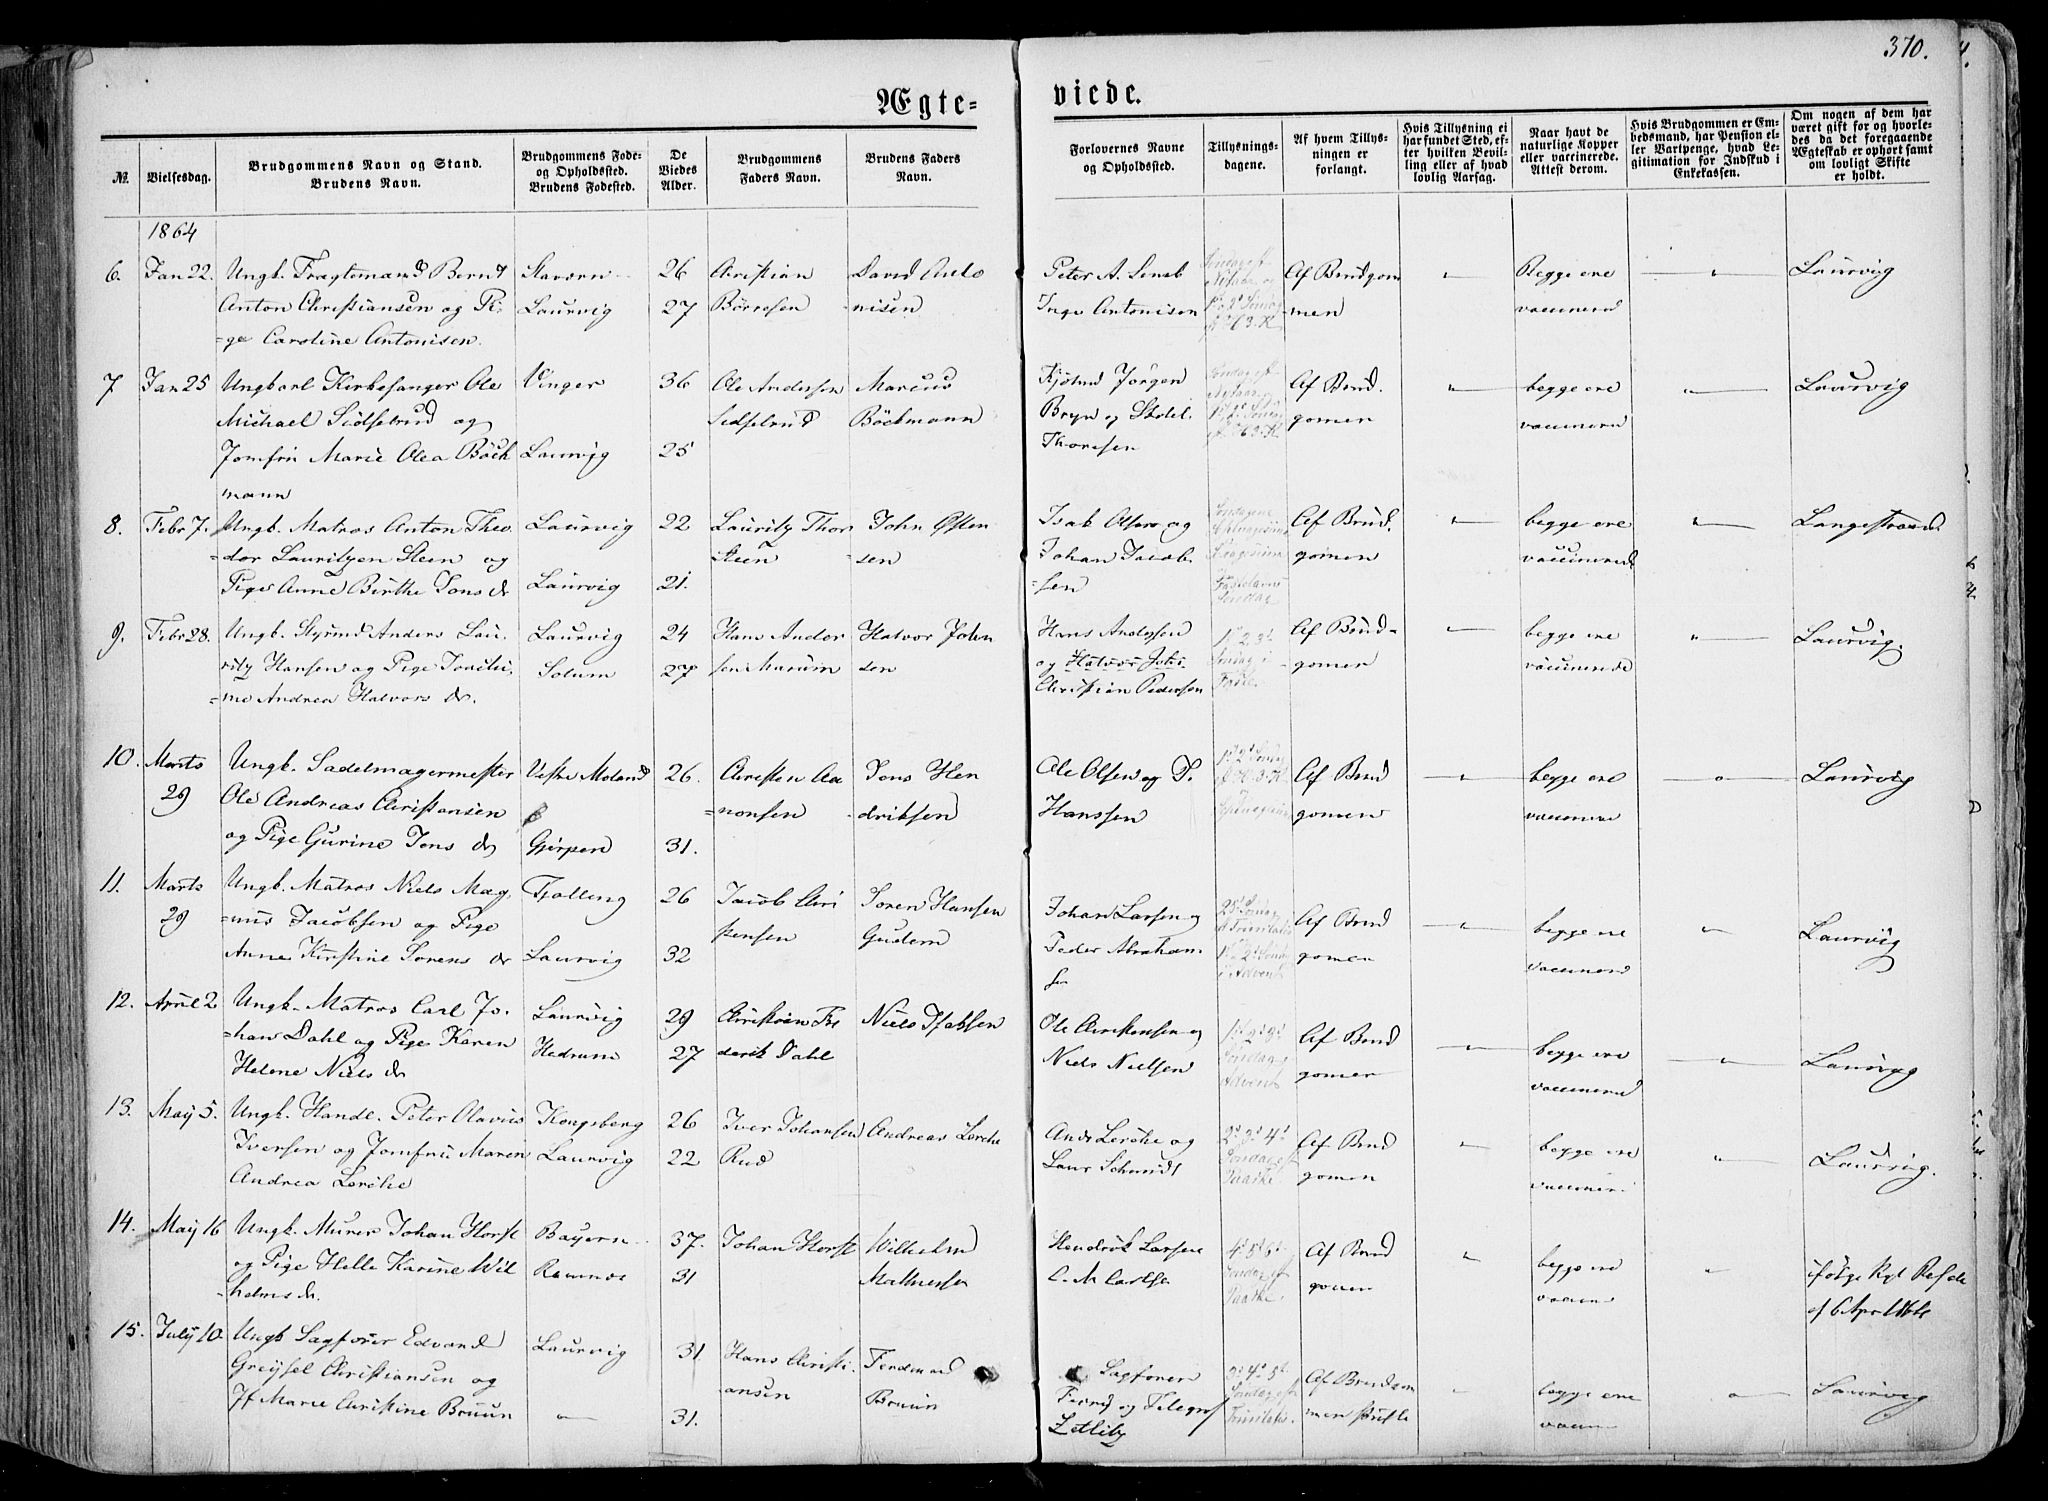 370.
Ægte= viede.
No.
Vielsesdag.
Brudgommens Navn og Stand.
Brudens Navn.
Brudgommens Føde-
og Opholdssted.
Brudens Fødested.
De
Viedes
Alder.
Brudgommens
Faders Navn.
Brudens Faders
Navn.
Forlovernes Navne
og Opholdssted.
Tillysnings-
dagene.
Af hvem Tillys-
ningen er
forlangt.
Hvis Tillysning ei
har fundet Sted, ef-
ter hvilken Bevil-
ling eller af hvad
lovlig Aarsag.
Naar havt de
naturlige Kopper
eller vaccinerede.
Attest derom.
Hvis Brudgommen er Em-
bedsmand, har Pension el-
ler Vartpenge, hvad Le-
gitimation for Indskud i
Enkekassen.
Om nogen af dem har
været gift før og hvorle-
des da det foregaaende
Ægteskab er ophørt samt
om lovligt Skifte
er holdt.
1864
6.
Jan 22.
Ungk. Fragtemand Bernt
Anton Christiansen og Pi-
=ge Caroline Antonisen.
Stavern
Laurvig
26
27
Christian
Börresen
David Anto
nisen
Peter A.
Inge Antonisen
Af Brudgom
men
Begge ere
vaccinered
Laurvig
7
Jan 25
Ungkarl Kirkesanger Ole
Michael Sidselrud og
Jomfru Marie Olea Böck
mann
Vinger
Laurvig
36
25
Ole Andersen
Sidselrud
Marcus
Böckmann
Jørgen
Bryn og
Thoresen
Af Brud.
gomen
begge ere
vaccinered
Laurvig
8.
Febr 7.
Ungk. Matros Anton Theo
=dor Lauritzen Steen og
Pige Anne Birthe Jons dr
Laurvig
Laurvig
22
21.
Lauritz Thor
Steen
John Østen
sen
Isak Olsen og
Johan Jacob
=sen
Af Brud.
gomen
begge ere
vaccinered
Langestrand
9.
Febr 28.
Ungk. Styrmd Anders Lau
ritz Hansen og Pige
=ne Andrea Halvors dr.
Laurvig
Solum
24
27
Hans Ander
sen
Halvor John
sen
Hans Andersen
og Halvor Johs
Christian Pedersen
1. 2. 3.
Søndag i
Faste.
Af Brud-
gomen
begge ere
vaccinerede
Laurvig.
10.
Marts
29
Ungk. Sadelmagermester
Ole Andreas Christensen
og Pige Gurine Jens dr
Vestre Moland
Gjerpen
26.
31.
Christen Aa
=nonsen
Jens Hen
driksen
Ole Olsen og T.
Hanssen
Af Brud
gomen
begge ere
vaccinered
Laurvig
11.
Marts
29
Ungk. Matros Niels Mag
=nus Jacobsen og Pige
Anne Kirstine Sørens dr
Tjølling
Laurvig
26
32
Jacob Chri
stensen
Søren Hansen
Johan Larsen og
Peder Abraham
sen
Af Brud
gomen
begge ere
vaccinered
Laurvig
12.
April 2
Ungk. Matros Carl Jo
=han Dahl og Pige Karen
Helene Niels dr
Laurvig
Hedrum
29
27
Christian Fre
derik Dahl
Niels
Ole Christensen og
Niels Nielsen
1. 2. 3.
Søndag i
Advent
Af Brud
gomen
begge ere
vaccinered
Laurvig
13.
May 5.
Ungk. Handl. Peter Olavus
Iversen og Jomfru Maren
Andrea Lerche
Kongsberg
Laurvig
26
22
Iver Johansen
Rud
Andreas Lerche
And. Lerche og
Laur Schmidt
2. 3. 4.
Søndag eft
Paaske.
Af Brud
gomen
begge ere
Laurvig.
14.
May 16
Ungk. Murer Johan Horst
og Pige Helle Karine Wil
helms dr.
Bayern
37.
31
Johan Horst
Wilhelm
Hendrik Larsen
C. M. Carlsen
4. 5.
Søndag eft
Paaske.
Af Brud
gomen
begge ere
ifølge Kgl
15.
July 10.
Ungk Sagfører Edvard
Christiansen og
Jf Marie Christine Bruun
Laurvig
31
31.
Hans Christi
ansen
Ferdinand
Bruun
Sagfører
og Telegraf
3. 4. 5.
Søndag eft
Trinitatis.
Af Brudgom
men
begge ere
Laurvig